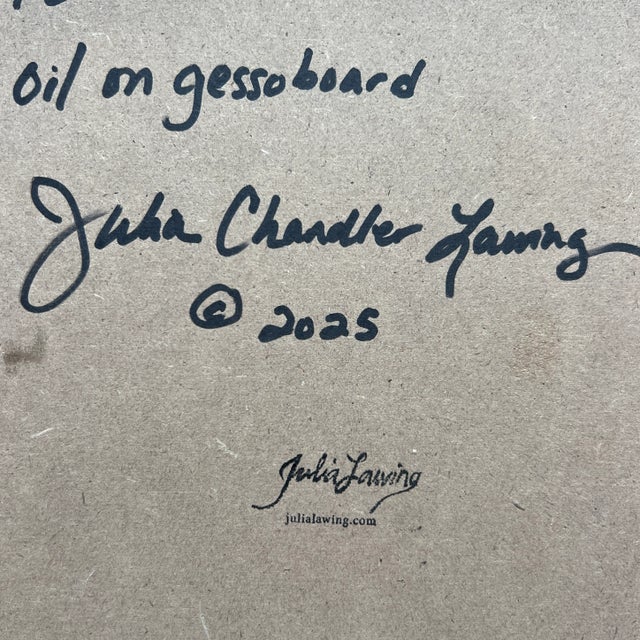 oil on gessoboard
Julia Chandler Lawing
© 2025
Julia Lawing
julialawing.com